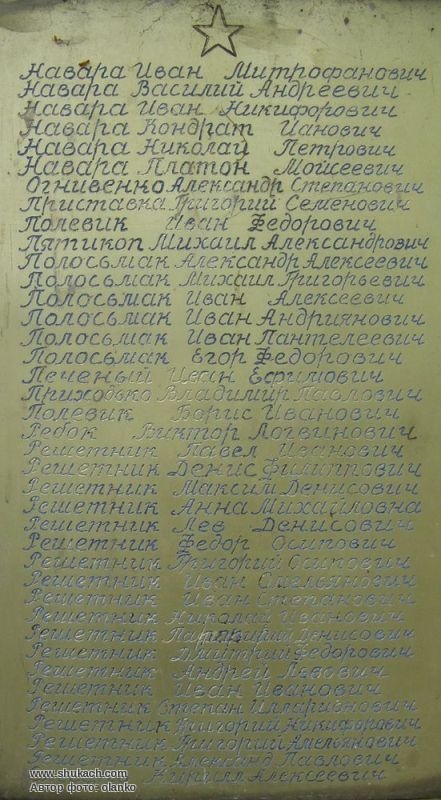 Навара Иван Митрофанович
Навара Василий Андреевич
Навара Иван Никифорович
Навара Кондрат Ианович
Навара Николай Петрович
Навара Платон Мойсеевич
Огнивенко Александр Степанович
Приставка Григорий Семенович
Полевик Иван Федорович
Пятикоп Михаил Александрович
Полосьмак Александр Алексеевич
Полосьмак Михаил Григорьевич
Полосьмак Иван Алексеевич
Полосьмак Иван Андриянович
Полосьмак Иван Пантелеевич
Полосьмак Егор Федорович
Печеный Иван Ефимович
Приходько Владимир Павлович
Полевик Борис Иванович
Ребок Виктор Логвинович
Решетник Павел Иванович
Решетник Денис Филиппович
Решетник Максим Денисович
Решетник Анна Михайловна
Решетник Лев Денисович
Решетник Федор Осипович
Решетник Григорий Осипович
Решетник Иван Омельянович
Решетник Иван Степанович
Решетник Николай Иванович
Решетник Денисович
Решетник Дмитрий Федорович
Решетник Андрей Левович
Решетник Иван Иванович
Решетник Степан Илларионович
Решетник Григорий Никифорович
Решетник Григорий Амельянович
Решетник Александ Павлович
Кирилл Алексеевич
www.shukach.com
Автор фото: olanko